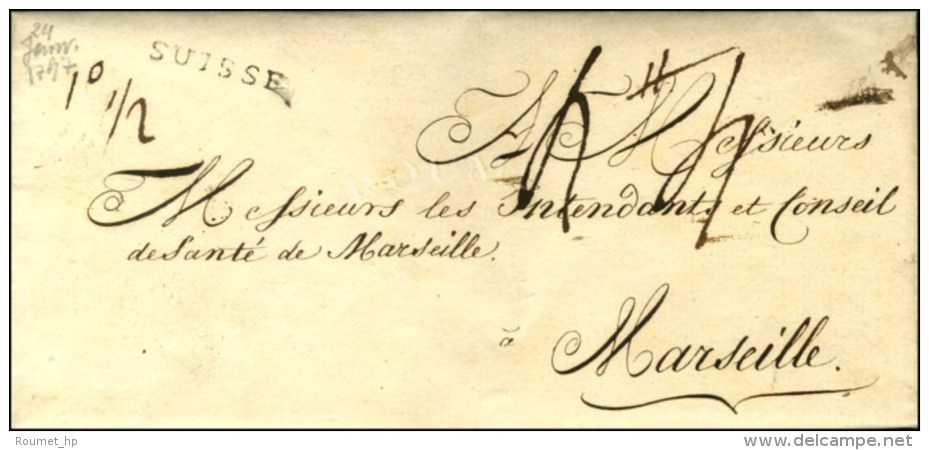 24
Janv.
1797
SUISSE
10
1/2
A Messieurs
Messieurs les Intendants et Conseil
de Santé de Marseille.
à
Marseille.
Roumet_hp
www.delcampe.net